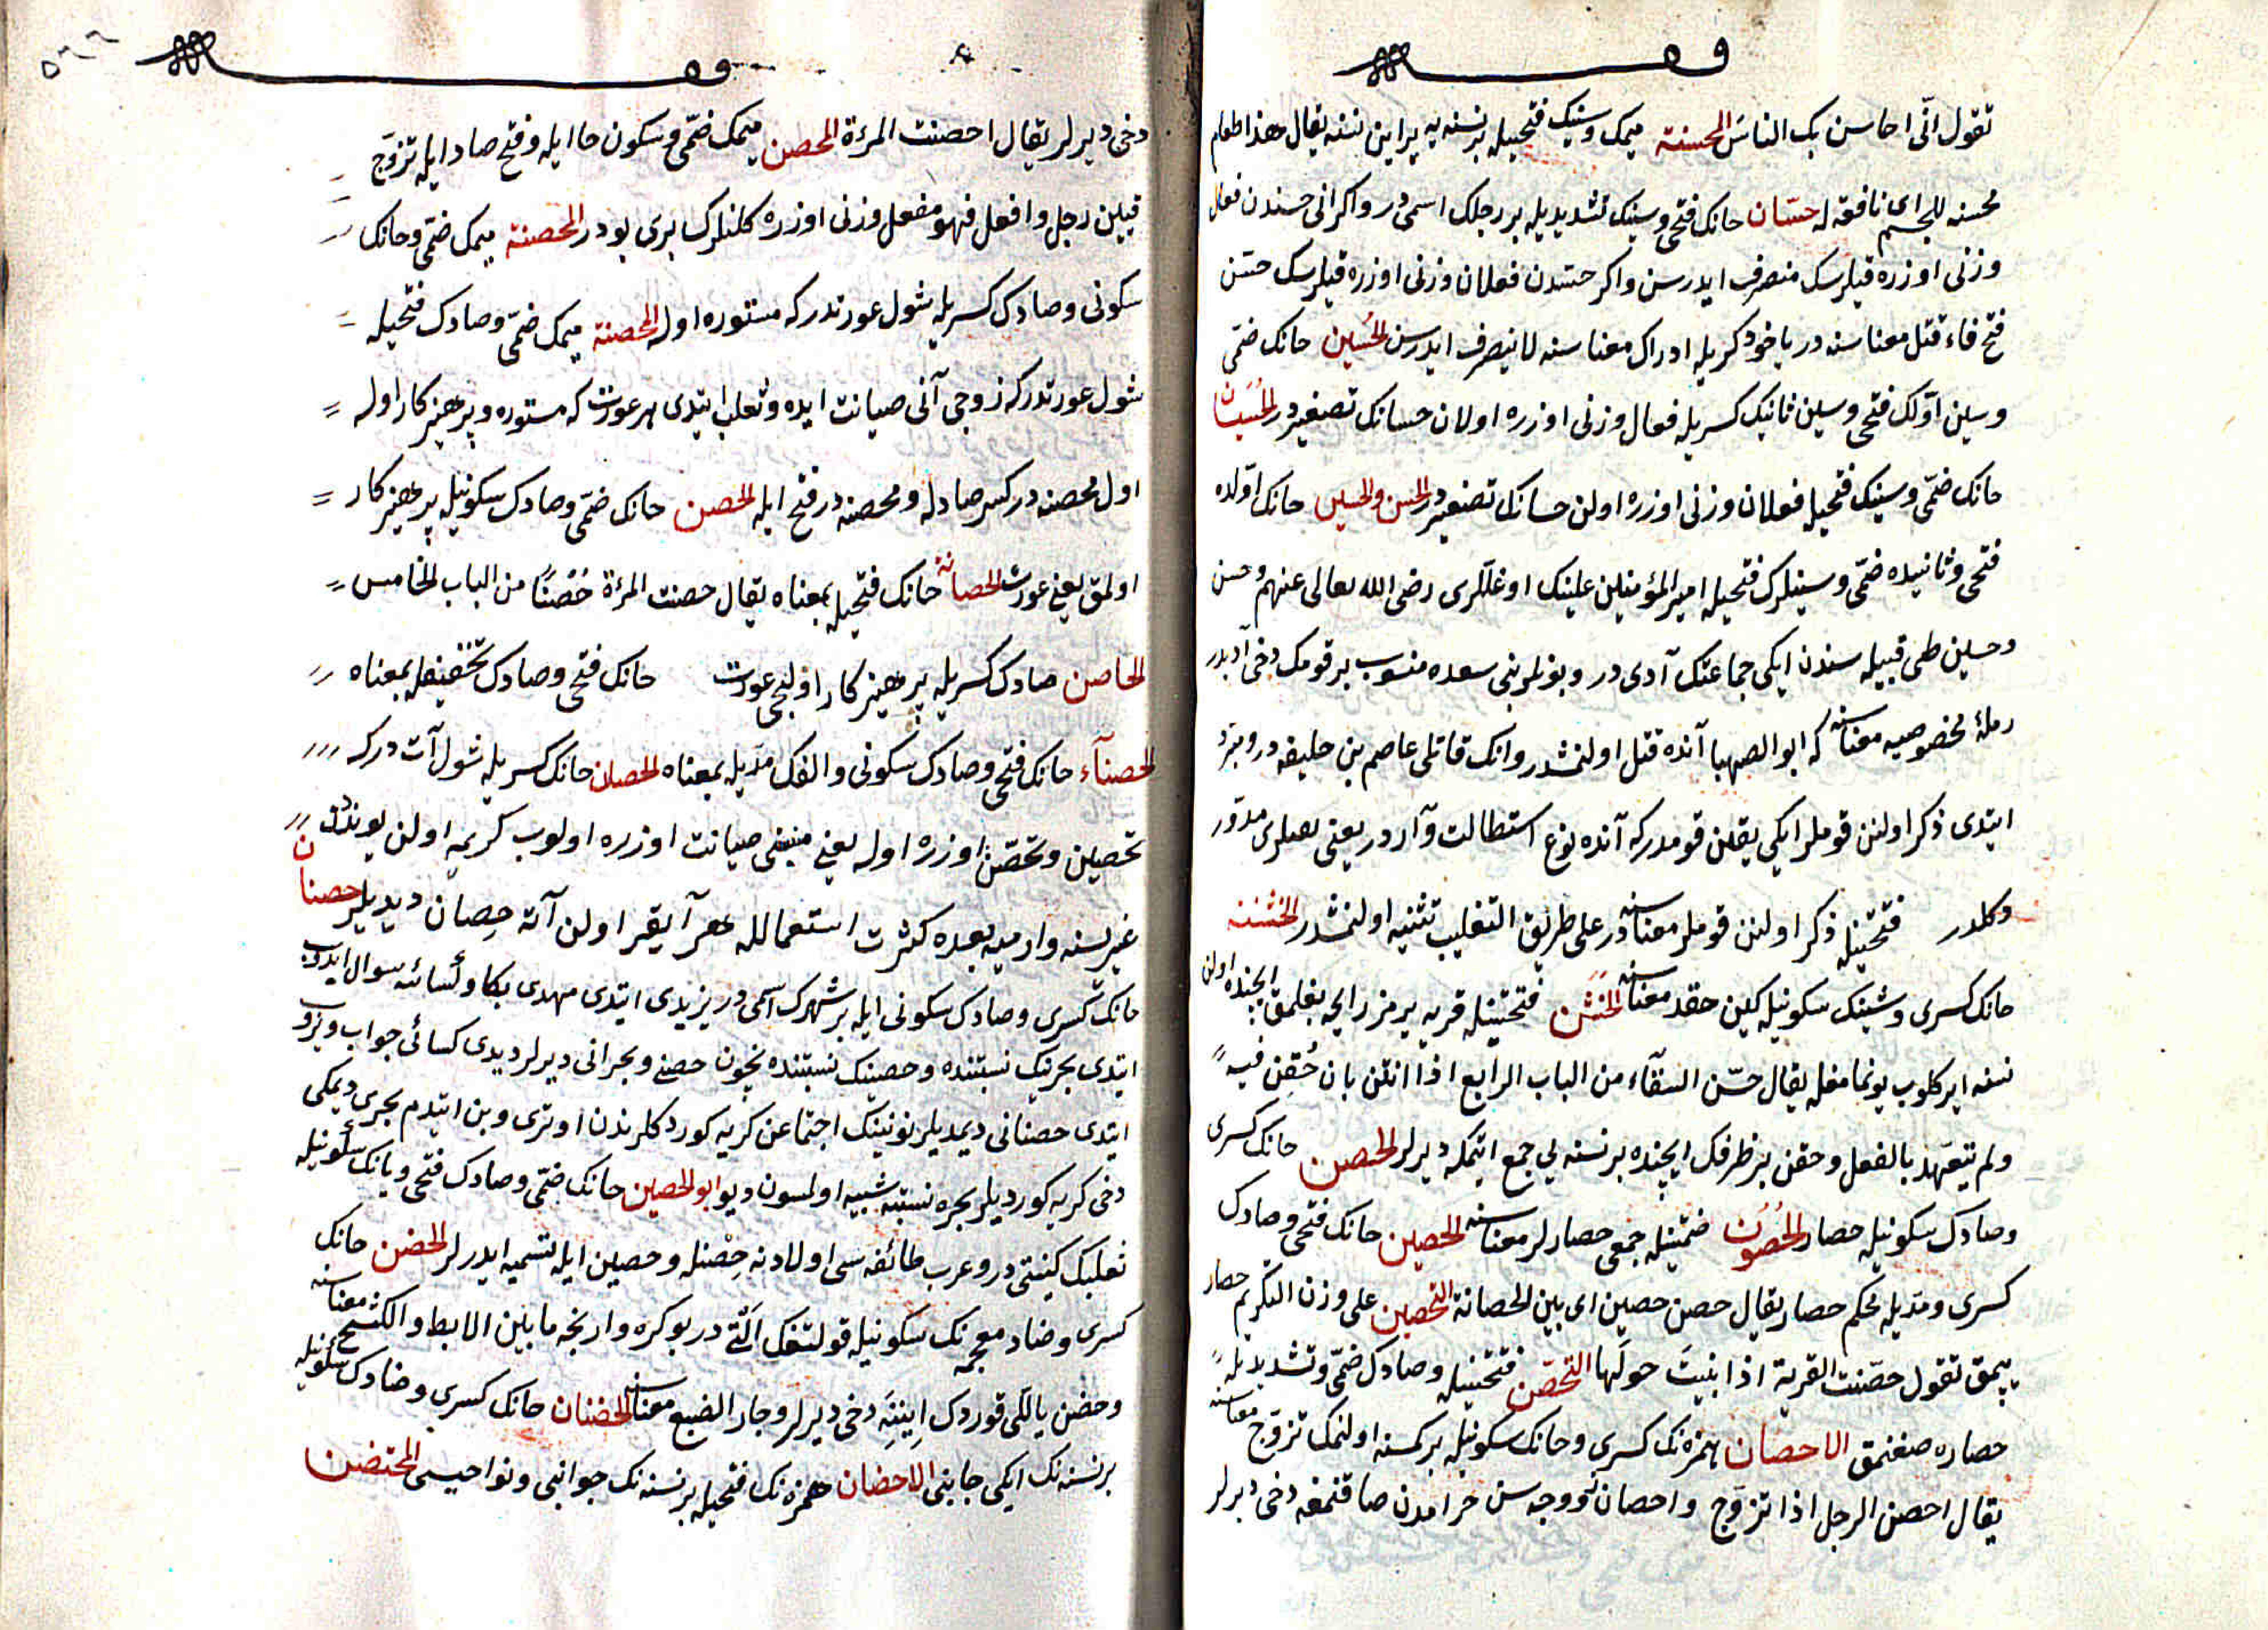 وقف
تقول انّى احاسن بك الناسَ المحسنة ميمك وسينك فتحيله بر نسنه يه يراين نسنه يقال هذا طعام
محسنه للجسم اى نافعة له حسّان حانك فتحى وسينك تشديديله بر رجلك اسمى در واكر انى حسندن فعال
وزنى اوزره قيلرسك منصرف ايدرسن واكر حسّدن فعلان وزنى اوزره قيلرسك حسّن
فتح فاء قتل معناسنه در ياخود كسريله ادراك معناسنه لا ينصرف ايدرسن الحُسَيِن حانك ضمّى
وسين اوّلك فتحى وسين ثانينك كسريله فعال وزنى اوزره اولان حسانك تصغيريدر الحُسَيْسَان
حانك ضمّى وسينك فتحيله فعلان وزنى اوزره اولن حسانك تصغيريدر الحسن والحسين حانك اوّلده
فتحى وثانيده ضمّى وسينلرك فتحيله امير المؤمنين علينك اوغللرى رضى الله تعالى عنهم وحسن
وحسين طى قبيله سندن ايكى جماعتك آدى در وبونلر بنى سعده منسوب بر قومك دخى آديدر
رملهٔ مخصوصيه معناسنه كه ابو الصهبا آنده قتل اولنمشدر وانك قاتلى عاصم بن خليفه در وبنرد
ايتدى ذكر اولنن قوملر ايكى يقين قومدر كه آنده نوع استطالت واردر يعنى يصلرى مدوّر
دكلدر فتحتينله ذكر اولنن قوملر معناسنه در على طريق التغليب تثنيه اولنمشدر الخشنة
حانك كسرى وشينك سكونيله كين حقد معناسنه الحَشَن فتحتينله قربه يرمز رايحه بغلمق ايچنده اولن
نسنه اير كلوب يونمامغله يقال حسّن السقآء من الباب الرابع اذا انتن بان حُقِن فيه
ولم يتعهّد بالفعل وحقن بر ظرفك ايچنده بر نسنه يى جمع ايتمكه ديرلر الحصن حانك كسرى
وصادك سكونيله حصار الحُصُون ضمّتينله جمعى حصارلر معناسنه الحصين حانك فتحى وصادك
كسرى ومدّيله محكم حصار يقال حصن حصين اى بين الحصانة التحصين على وزن التكريم حصار
يپمق تقول حصّنت القرية اذا بنيتَ حولَها التحصّن فتحتينله وصادك ضمّى وتشديديله
حصاره صغنمق الاحصان همزه نك كسرى وحانك سكونيله بر كمسه اولنمك تزوّج معناسنه
يقال احصن الرجل اذا تزوّج واحصان زوجه سن حرامدن صاقنمغه دخى ديرلر
وقف
٥٦٦
دخى ديرلر يقال احصنت المرءة المحصن ميمك ضمّى وسكون حا ايله وفتح صاد ايله تزوّج
قيلن رجل وافعل فهو مفعل وزنى اوزره كلنلرك برى بودر المحصنة ميمك ضمّى وحانك
سكونى وصادك كسريله شول عورتدر كه مستوره اوله المحصنة ميمك ضمّى وصادك فتحيله
شول عورتدر كه زوجى آنى صيانت ايده وثعلب ايتدى هر عورت كه مستوره وپرهيزكار اوله
اول محصنه در كسر صادله ومحصنه در فتح ايله الحصن حانك ضمّى وصادك سكونيله پرهيزكار
اولمق يعنى عورت الحصانة حانك فتحيله بمعناه يقال حصنت المرءة حُصْنًا من الباب الخامس
الحاصن صادك كسريله پرهيزكار اولجى عورت حانك فتحى وصادك تخفيفله بمعناه
الحصنآء حانك فتحى وصادك سكونى والفك مدّيله بمعناه الحصان حانك كسريله شول آت در كه
تحصين وتحصّن اوزره اوله يعنى منيغى صيانت اوزره اولوب كريم اولن يوندكن
غيريسنه وارميه بعده كثرت استعمالله هر آيغر اولن آته حِصان ديديلر حصنان
حانك كسرى وصادك سكونى ايله بر شهرك اسمى در يزيدى ايتدى مهدى بكا وكسائه سوال ايدوب
ايتدى بحرينك نسبتنده وحصنينك نسبتنده نچون حصنى وبحرانى ديرلر ديدى كسائى جواب ويروب
ايتدى حصنانى ديمديلر نونينك اجتماعن كريه كوردكلرندن اوترى وبن ايتدم بحرى ديمكى
دخى كريه كورديلر بحره نسبته شبيه اولسون ديو ابو الحصين حانك ضمّى وصادك فتحى ويانك سكونيله
ثعلبك كنيتى در وعرب طائفه سى اولادنه حِصْنله وحصين ايله تسميه ايدرلر الحضن حانك
كسرى وضاد معجمه نك سكونيله قولتغك آلتى در بوكره وارنجه ما بين الابط والكشح معناسنه
وحضن ياللى قوردك ايننه دخى ديرلر وجار الضبع معناسنه الحضنان حانك كسرى وضادك سكونيله
بر نسنه نك ايكى جانبى الاحضان همزه نك فتحيله بر نسنه نك جوانبى ونواحيسى المحتضن